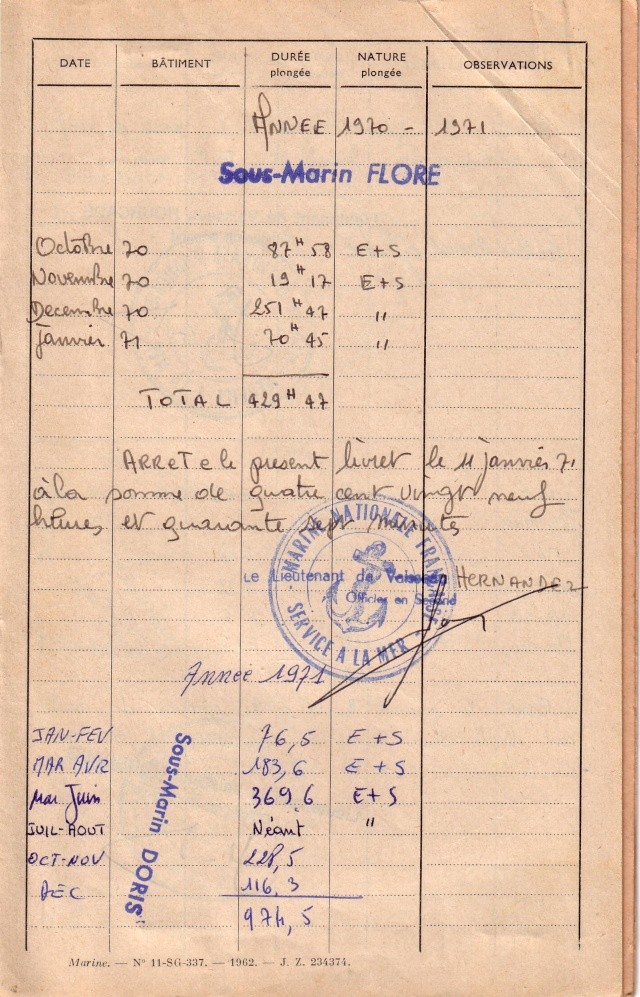 DATE BÂTIMENT DURÉE plongée NATURE plongée OBSERVATIONS
ANNEE 1970 - 1971
Sous-Marin FLORE
Octobre 70 87H 58 E+S
Novembre 70 19H 17 E+S
Decembre 70 251H 47 "
janvier 71 70H 45 "
TOTAL 429H 47
ARReTe le present livret le 11 janvier 71
à la somme de quatre cent vingt neuf
heures et quarante sept minutes
MARINE NATIONALE FRANÇAISE
Le Lieutenant de Vaisseau HERNANDEZ
Officier en Second
SERVICE A LA MER
Année 1971
Sous-Marin DORIS
JAN-FEV 76,5 E+S
MAR AVR 183,6 E+S
Mai Juin 369,6 E+S
JUIL-AOUT Néant "
OCT-NOV 228,5
DEC 116,3
974,5
Marine. — N° 11-SG-337. — 1962. — J. Z. 234374.